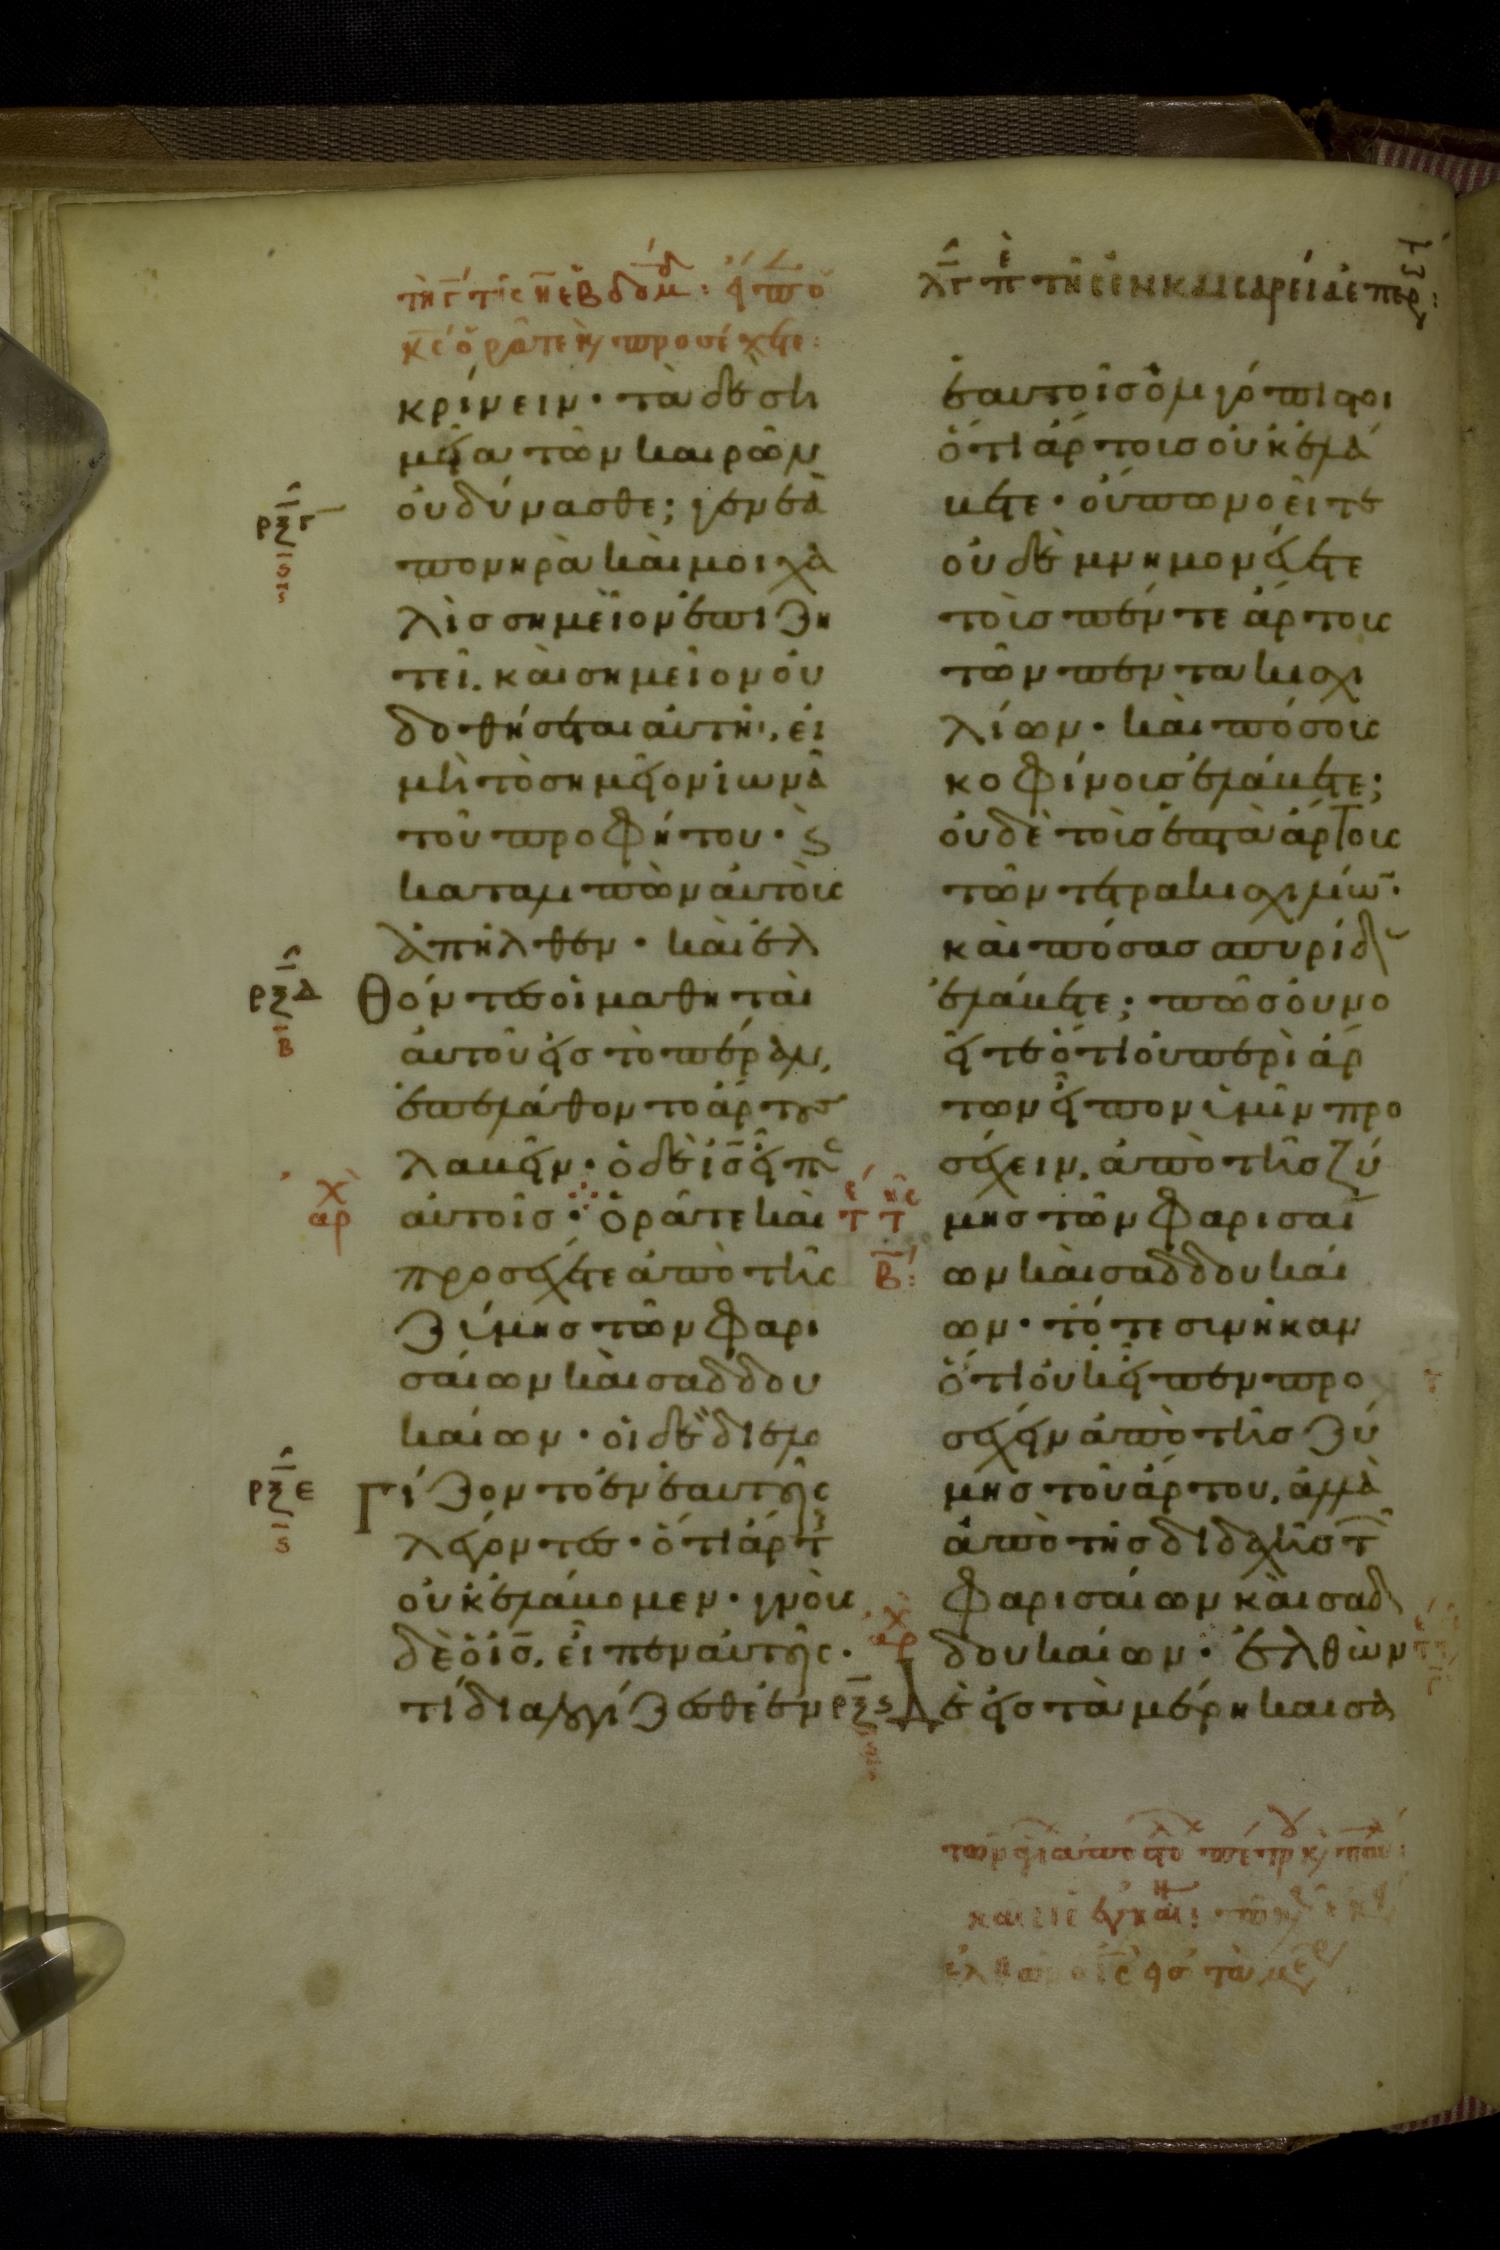 τῆ γ τῆς η ἑβδομ: εἶπ ὁ
κς ὁρᾶτε κ προσέχετε:
κρίνειν· τὰ δὲ ση
μεῖα τῶν καιρῶν
οὐ δύνασθε; γενεὰ
πονηρὰ καὶ μοιχα
λὶς σημεῖον ἐπιζη
τεῖ. καὶ σημεῖον οὐ
δοθήσεται αὐτῆ, εἰ
μὴ τὸ σημεῖον ἰωνᾶ
τοῦ προφήτου· ϗ
καταλιπὼν αὐτοὺς
ἀπῆλθεν· καὶ ἐλ
ρξγ
ς
ρξδ
β
θόντες οἱ μαθηταὶ
αὐτοῦ εἰς τὸ πέραν,
ἐπελάθοντο ἄρτους
λαβεῖν· ὁ δὲ ις εἶπ
χ
αρ
αὐτοῖς· ὁρᾶτε καὶ
προσέχετε ἀπὸ τῆς
ζύμης τῶν φαρι
σαίων καὶ σαδδου
καίων· οἱ δὲ διελο
ρξε
ς
γίζοντο ἐν ἑαυτοῖς
λέγοντες· ὅτι ἄρτ
οὐκ ἐλάβομεν· γνοὺς
δὲ ὁ ις. εἶπεν αὐτοῖς·
τί διαλογίζεσθε ἐν
λγ π τῆς ἐν καισαρεία ἐπερ:
ἑαυτοῖς ὀλιγόπιστοι
ὅτι ἄρτους οὐκ ἐλά
βετε· οὔπω νοεῖτε
οὐδὲ μνημονεύετε
τοὺς πέντε ἄρτους
τῶν πεντακισχι
λίων· καὶ πόσους
κοφίνους ἐλάβετε;
οὐδὲ τοὺς ἑπτὰ ἄρτους
τῶν τετρακισχιλίω·
καὶ πόσας σπυρίδ
ἐλάβετε; πῶς οὐ νο
εῖτε ὅτι οὐ περὶ ἄρ
των εἶπον ὑμῖν προ
σέχειν. ἀπὸ τῆς ζύ
μης τῶν φαρισαί
β:
ων καὶ σαδδουκαί
ων· τότε συνῆκαν
ὅτι οὐκ εἶπεν προ
σέχειν ἀπὸ τῆς ζύ
μης τοῦ ἄρτου. ἀλλὰ
ἀπὸ τῆς διδαχῆς τ
φαρισαίων καὶ σαδ
χ
αρ
δουκαίων· ἐλθὼν
ρξς
δὲ εἰς τὰ μέρη καισα
ἐλθὼν ὁ ις εἰς τὰ μέρ